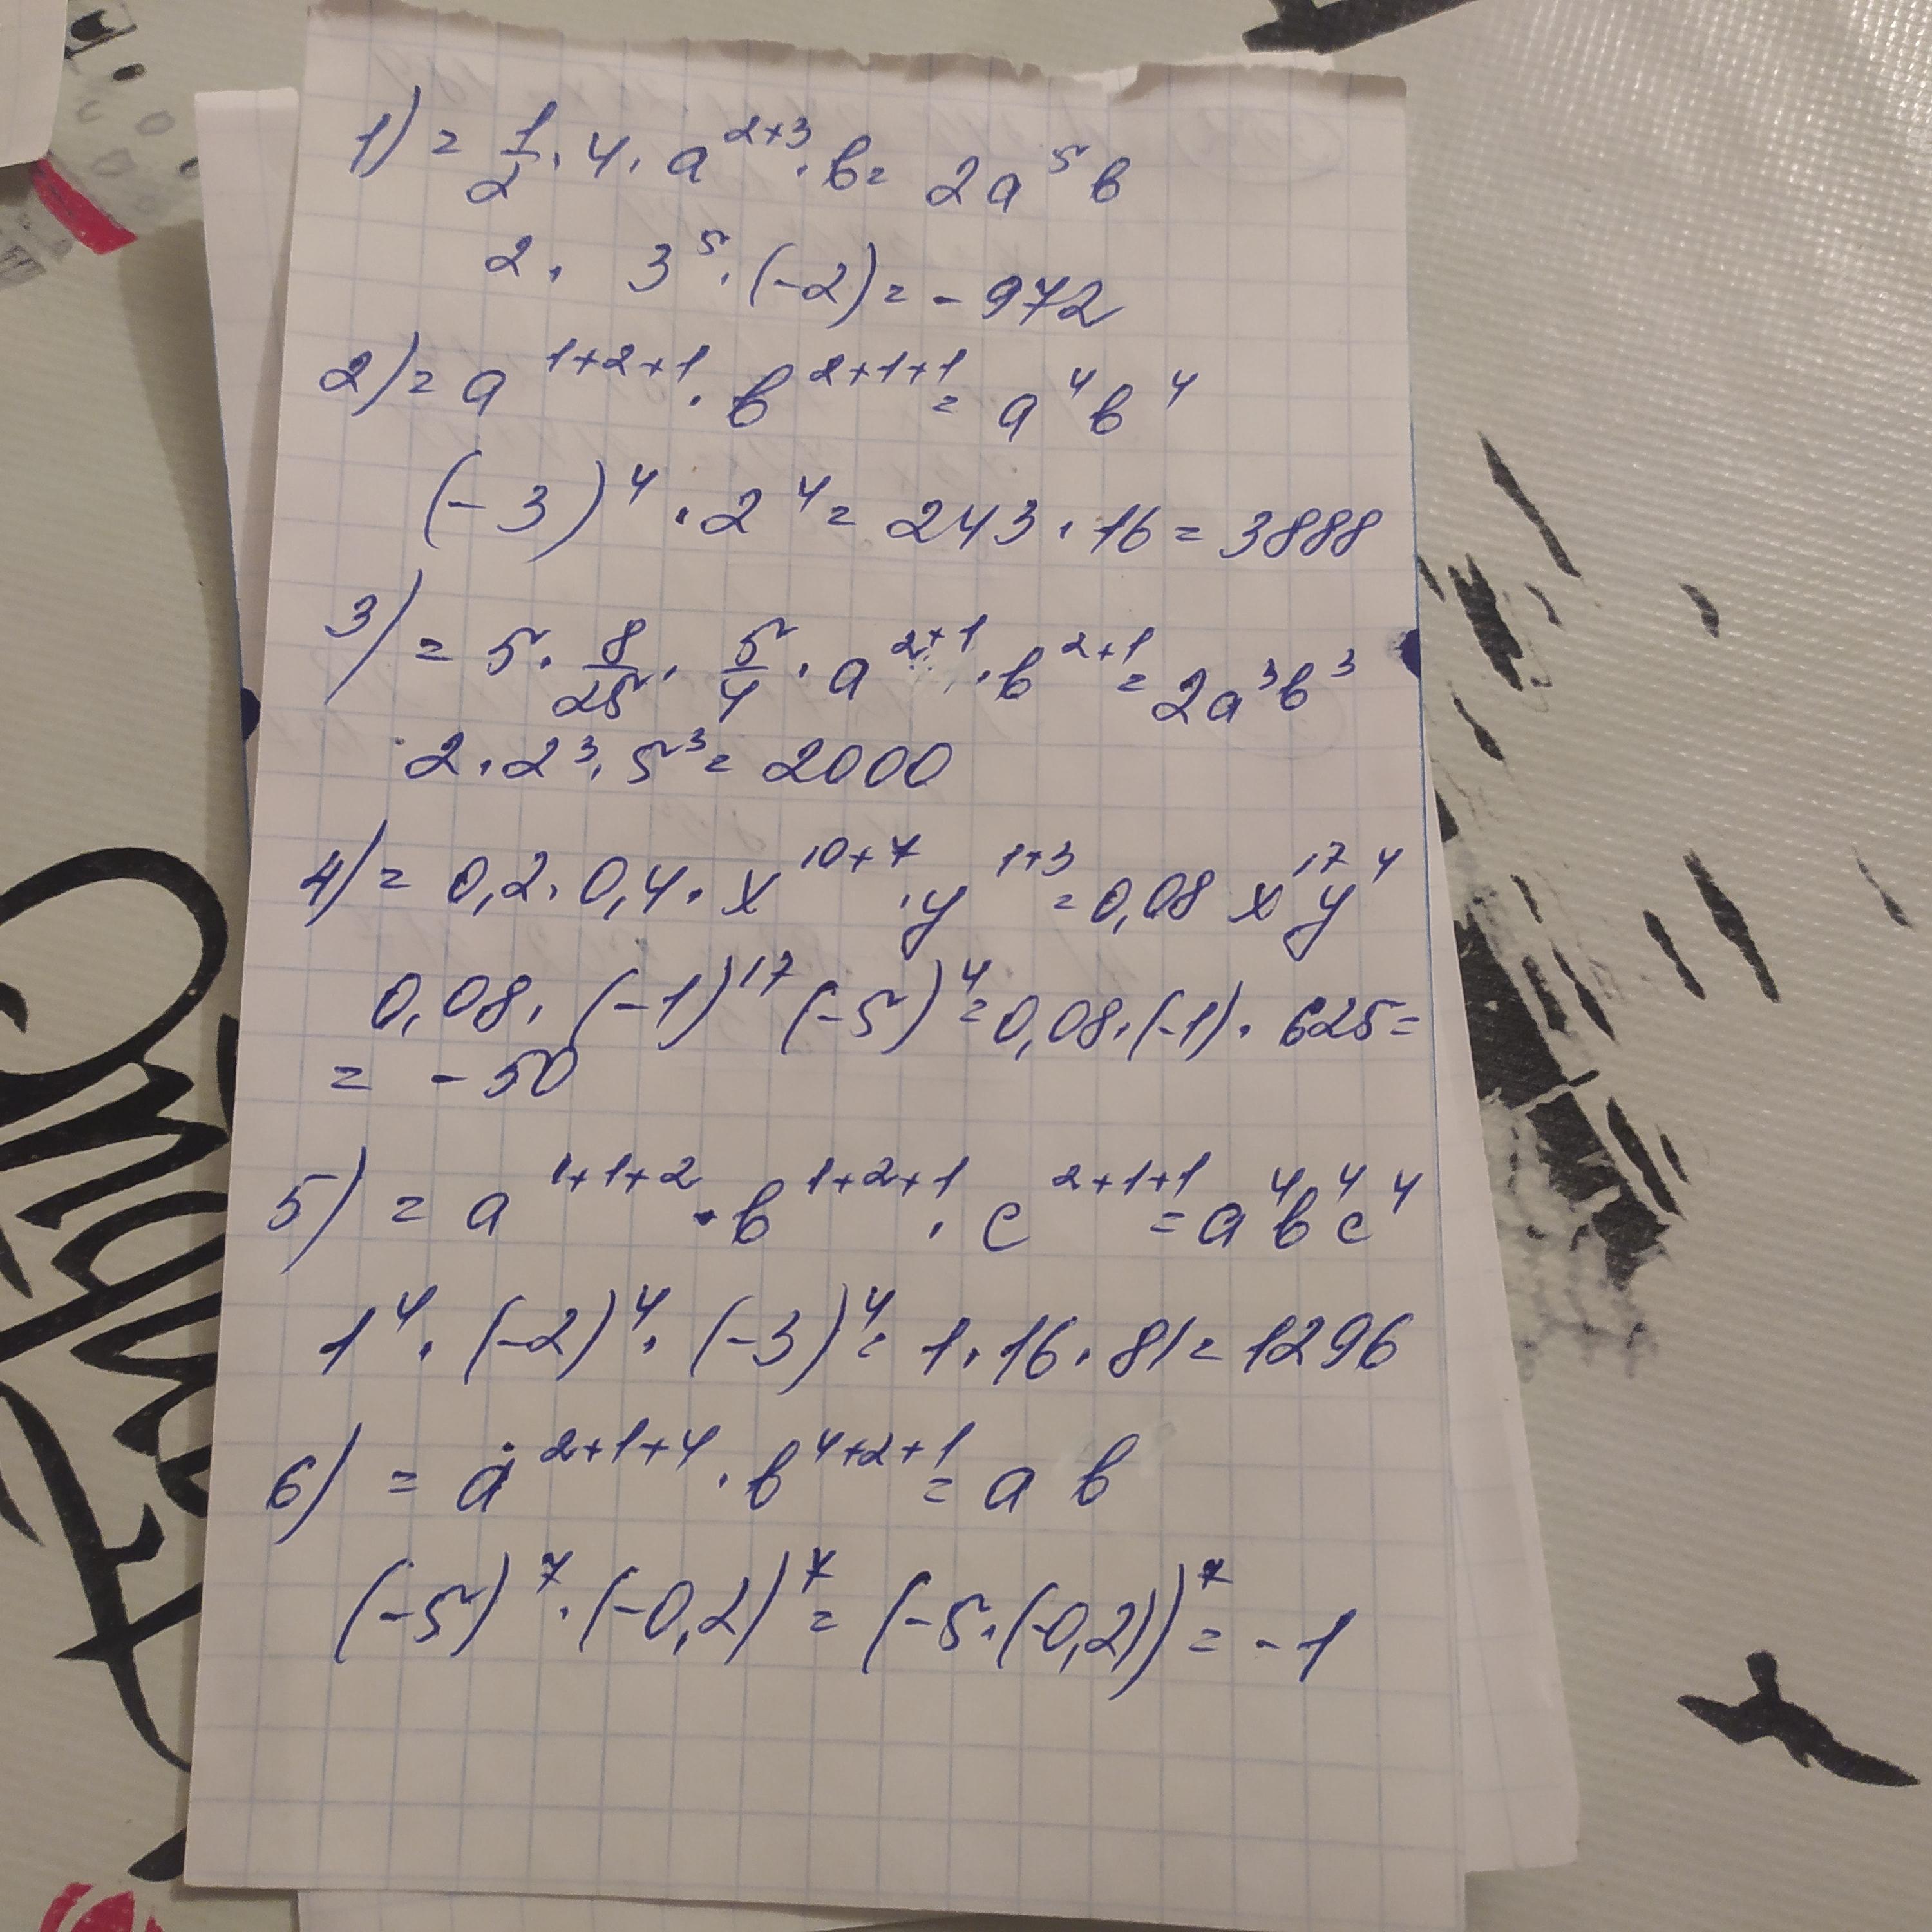 1) = 1/2 · 4 · a^(2+3) · b = 2a^5 b
2 · 3^5 · (-2) = -972
2) = a^(1+2+1) · b^(2+1+1) = a^4 b^4
(-3)^4 · 2^4 = 243 · 16 = 3888
3) = 5 · 8/25 · 5/4 · a^(2+1) · b^(2+1) = 2a^3 b^3
2 · 2^3 · 5^3 = 2000
4) = 0,2 · 0,4 · x^(10+7) · y^(1+3) = 0,08 x^17 y^4
0,08 · (-1)^17 (-5)^4 = 0,08 · (-1) · 625 =
= -50
5) = a^(1+1+2) · b^(1+2+1) · c^(2+1+1) = a^4 b^4 c^4
1^4 · (-2)^4 · (-3)^4 = 1 · 16 · 81 = 1296
6) = a^(2+1+4) · b^(4+2+1) = a b
(-5)^7 · (-0,2)^7 = (-5 · (-0,2))^7 = -1